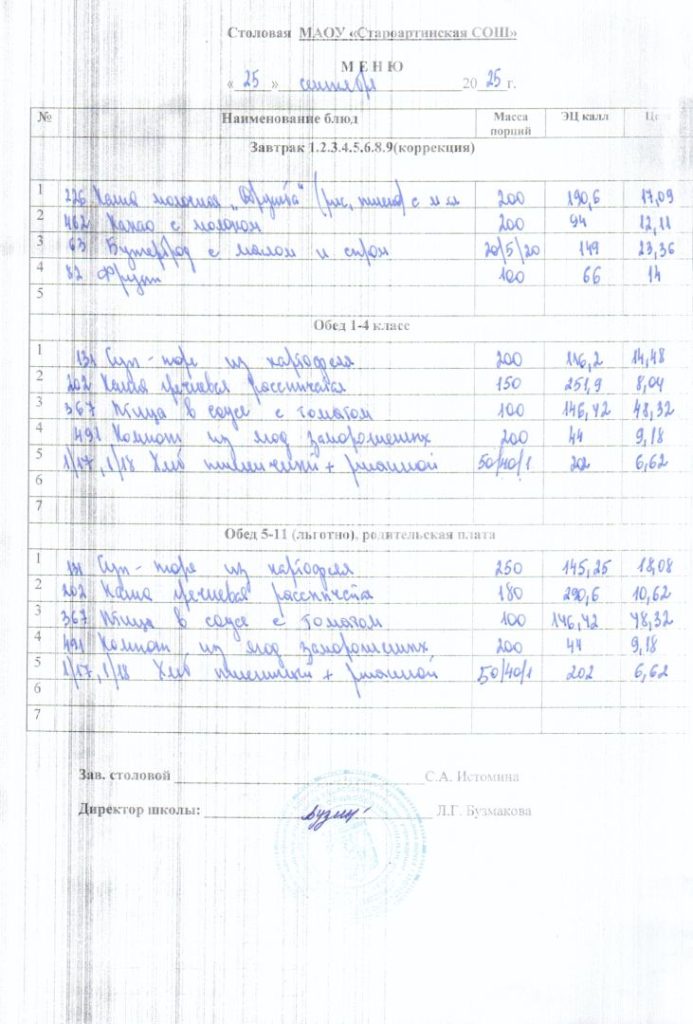 Столовая МАОУ «Староартинская СОШ»
М Е Н Ю
« 25 » сентября 20 25 г.
№ Наименование блюд Масса порций ЭЦ калл Це
Завтрак 1.2.3.4.5.6.8.9(коррекция)
1 226 Каша молочная „Дружба" (рис, пшено) с м м 200 190,6 17,09
2 462 Какао с молоком 200 94 12,11
3 63 Бутерброд с маслом и сыром 20/5/20 149 23,36
4 82 Фрукт 100 66 14
5
Обед 1-4 класс
1 131 Суп-пюре из картофеля 200 116,2 14,48
2 202 Каша гречневая рассыпчатая 150 251,9 8,04
3 367 Птица в соусе с томатом 100 146,42 48,32
4 491 Компот из ягод замороженных 200 44 9,18
5 1/17, 1/18 Хлеб пшеничный + ржаной 50/40/1 202 6,62
6
7
Обед 5-11 (льготно), родительская плата
1 131 Суп-пюре из картофеля 250 145,25 18,08
2 202 Каша гречневая рассыпчатая 180 290,6 10,62
3 367 Птица в соусе с томатом 100 146,42 48,32
4 491 Компот из ягод замороженных 200 44 9,18
5 1/17, 1/18 Хлеб пшеничный + ржаной 50/40/1 202 6,62
6
7
Зав. столовой С.А. Истомина
Директор школы: Л.Г. Бузмакова